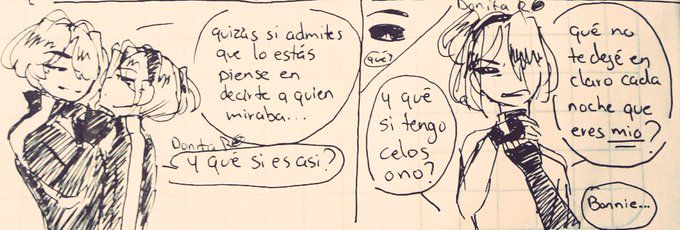 quizás si admites
que lo estás
piense en
decirte a quien
miraba...
Y qué si es así?
qué?
Y qué
si tengo
celos
o no?
qué no
te dejé en
claro cada
noche que
eres mío?
Bonnie...
Donita R
Donita R